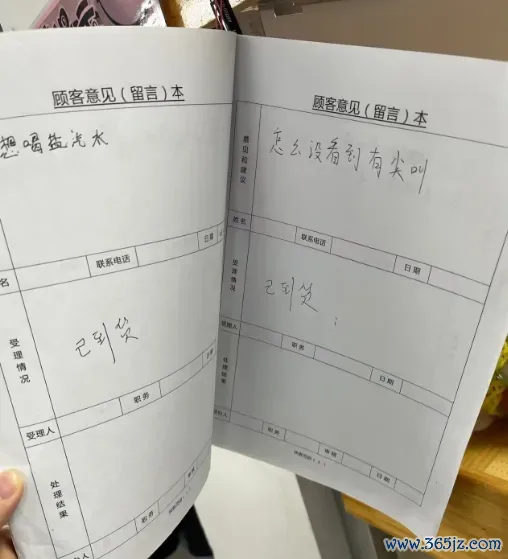 顾客意见（留言）本
想喝盐汽水
名
联系电话
日期
受理情况
已到货
受理人
职务
日期
处理结果
职务
顾客意见（留言）本
意见和建议
怎么没看到有尖叫
姓名
联系电话
日期
受理情况
已到货
受理人
职务
日期
处理结果
职务
日期
www.365jz.com